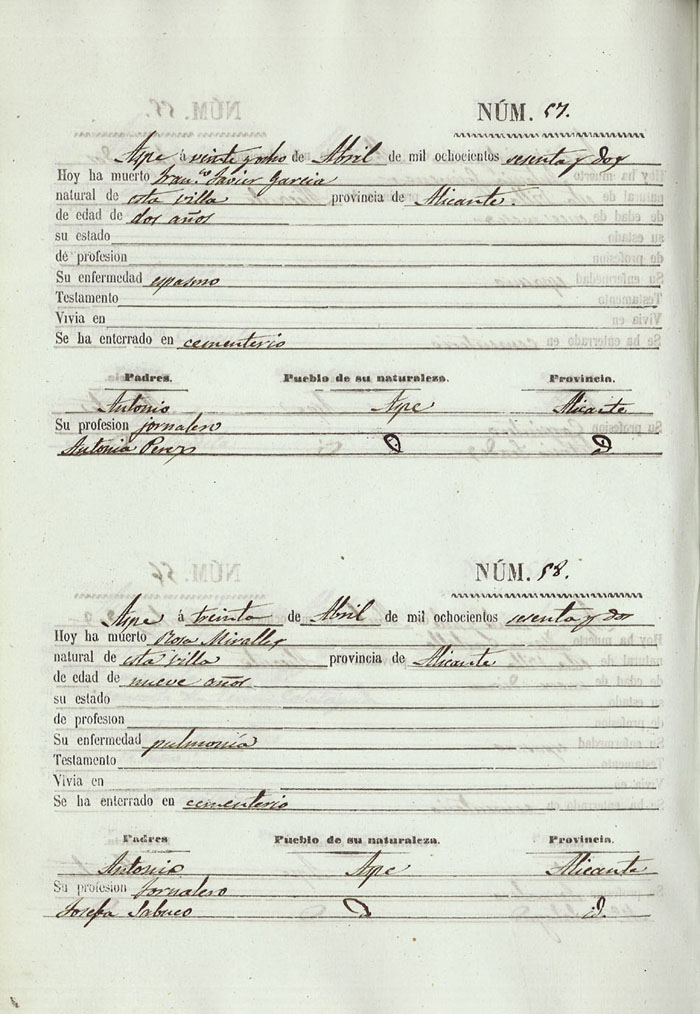 NÚM. 57.
Aspe á veinte y ocho de Abril de mil ochocientos sesenta y dos
Hoy ha muerto Fran.co Javier Garcia
natural de esta villa provincia de Alicante.
de edad de dos años
su estado
de profesion
Su enfermedad espasmo
Testamento
Vivia en
Se ha enterrado en cementerio
Padres. Pueblo de su naturaleza. Provincia.
Antonio Aspe Alicante
Su profesion jornalero
Antonia Perez D. D.
NÚM. 58.
Aspe á treinta de Abril de mil ochocientos sesenta y dos
Hoy ha muerto Rosa Miralles
natural de esta villa provincia de Alicante
de edad de nueve años
su estado
de profesion
Su enfermedad pulmonía
Testamento
Vivia en
Se ha enterrado en cementerio
Padres Pueblo de su naturaleza. Provincia.
Antonio Aspe Alicante
Su profesion Jornalero
Josefa Sabuco D. D.